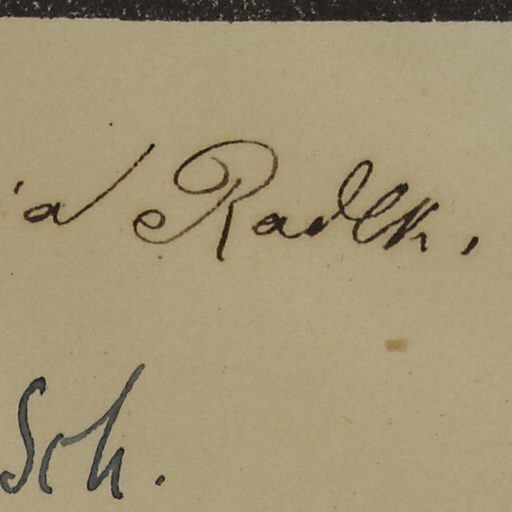 a/ Radlk.
Sch.